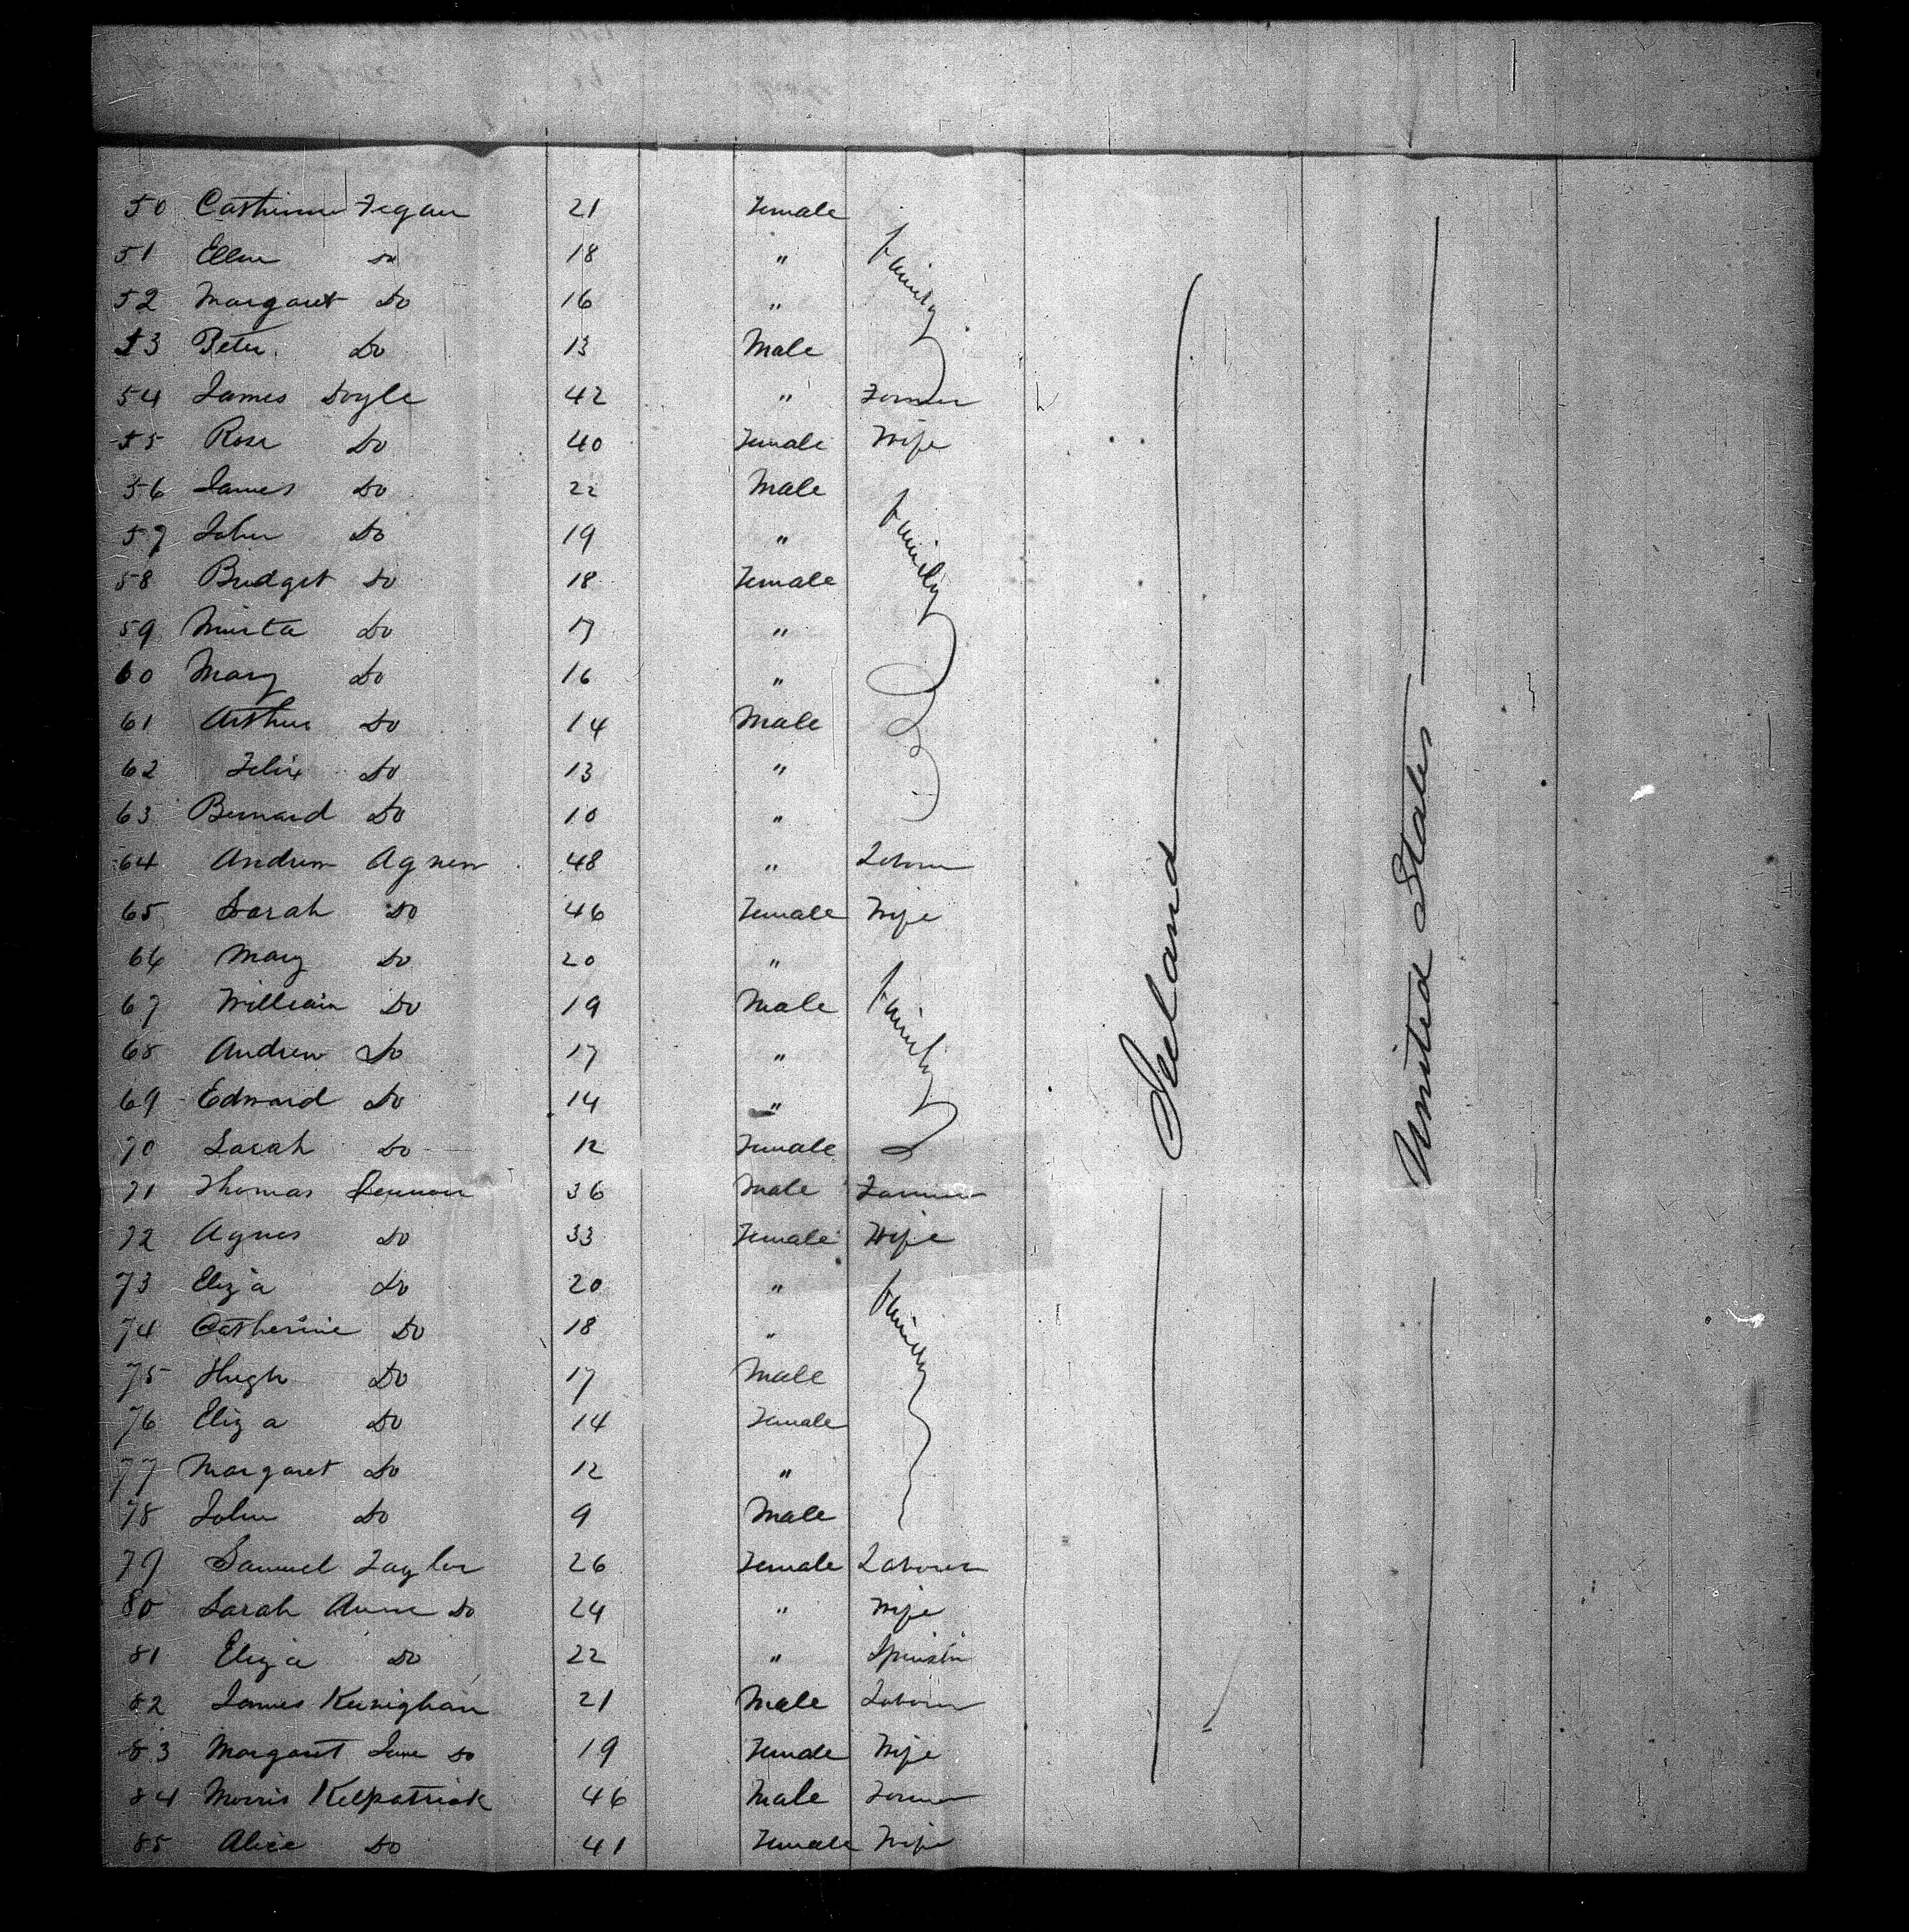 50 Catherine Fegan 21 Female
51 Ellen Do 18 " Family
52 Margaret Do 16 "
53 Peter Do 13 Male
54 James Doyle 42 " Farmer
55 Rose Do 40 Female Wife
56 James Do 22 Male
57 John Do 19 " Family
58 Bridget Do 18 Female
59 Do 17 "
60 Mary Do 16 "
61 Arthur Do 14 Male
62 Felix Do 13 "
63 Bernard Do 10 "
64 Andrew Agnew 48 " Laborer
65 Sarah Do 46 Female Wife
66 Mary Do 20 "
67 William Do 19 Male Family
68 Andrew Do 17 "
69 Edward Do 14 "
70 Sarah Do 12 Female
71 Thomas Lennon 36 Male Farmer
72 Agnes Do 33 Female Wife
73 Eliza Do 20 "
74 Catherine Do 18 " Family
75 Hugh Do 17 Male
76 Eliza Do 14 Female
77 Margaret Do 12 "
78 John Do 9 Male
79 Samuel Taylor 26 Female Laborer
80 Sarah Anne Do 24 " Wife
81 Eliza Do 22 " Spinster
82 James Kernighan 21 Male Laborer
83 Margaret Jane Do 19 Female Wife
84 Morris Kilpatrick 46 Male Farmer
85 Alice Do 41 Female Wife
Ireland
United States